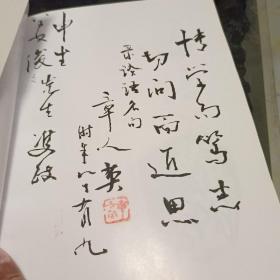 博学而笃志
切问而近思
录论语名句
章人英
时年八十有九
中生
先生雅政